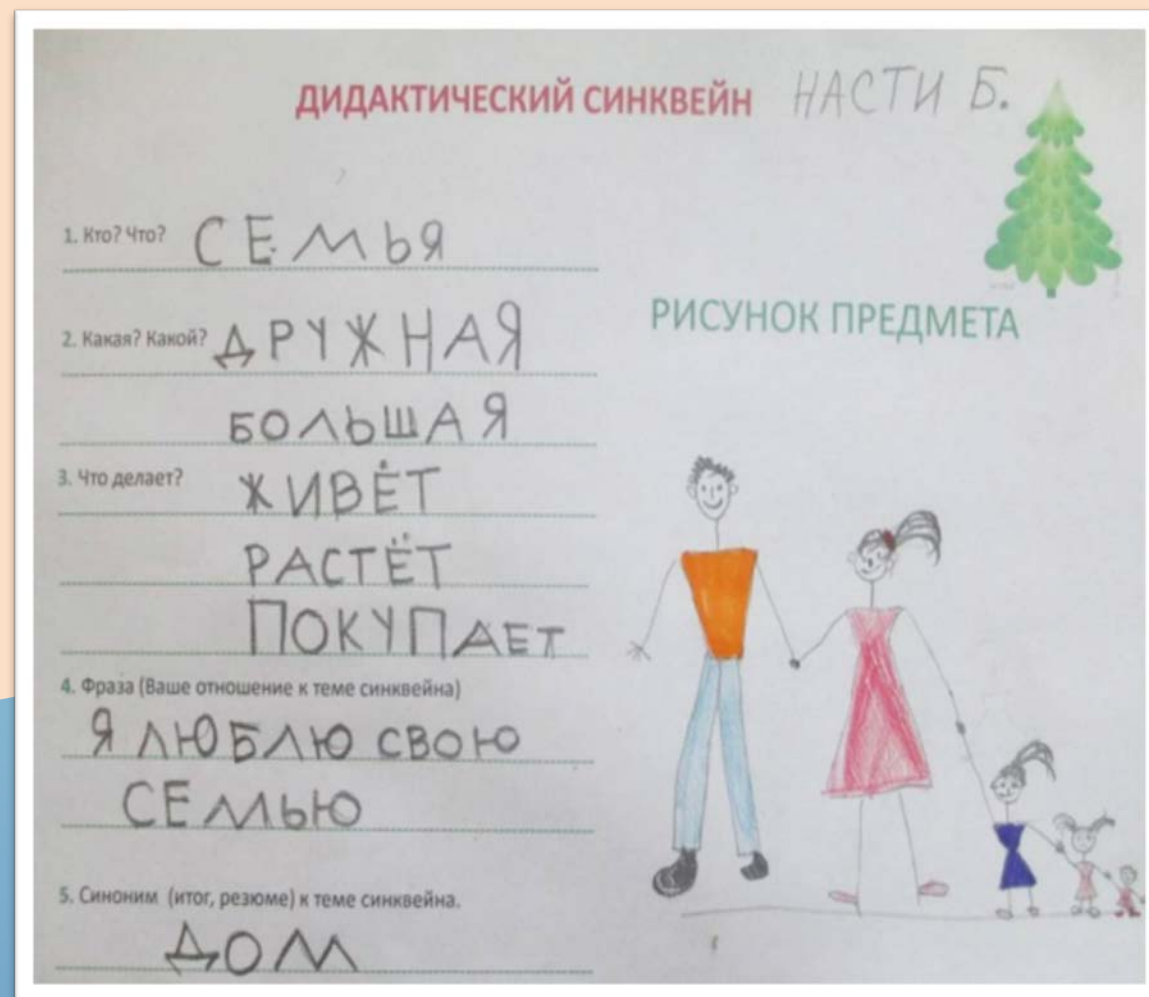 ДИДАКТИЧЕСКИЙ СИНКВЕЙН НАСТИ Б.
1. Кто? Что? СЕМЬЯ
2. Какая? Какой? ДРУЖНАЯ
БОЛЬШАЯ
3. Что делает? ЖИВЁТ
РАСТЁТ
ПОКУПАЕТ
4. Фраза (Ваше отношение к теме синквейна)
Я ЛЮБЛЮ СВОЮ
СЕМЬЮ
5. Синоним (итог, резюме) к теме синквейна.
ДОМ
РИСУНОК ПРЕДМЕТА